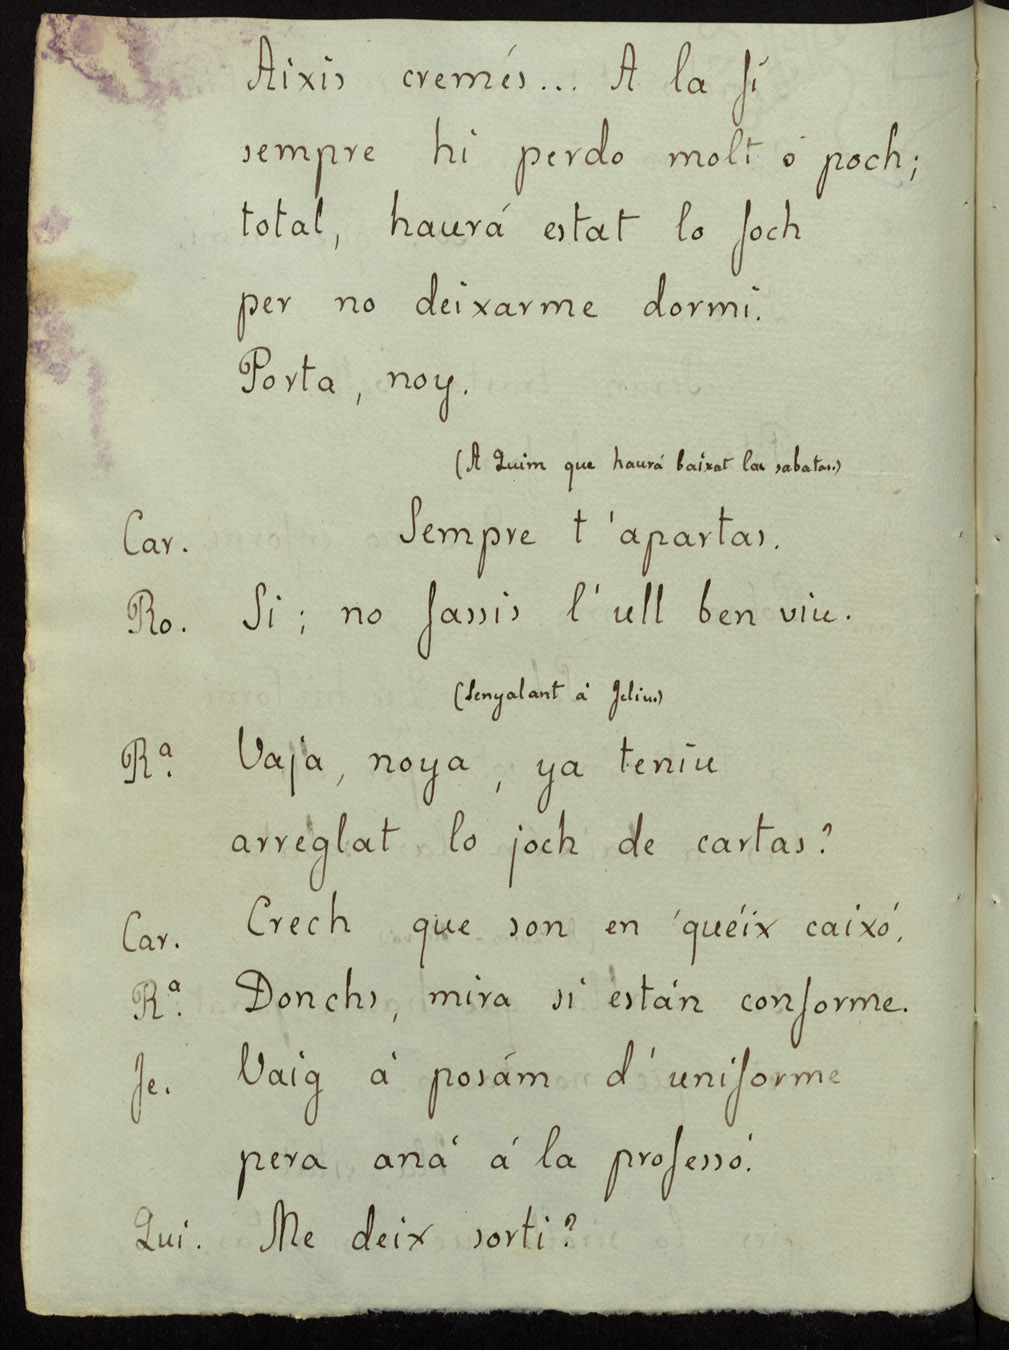 Aixis cremés... A la fi
sempre hi perdo molt ó poch;
total, haurá estat lo foch
per no deixarme dormi.
Porta, noy.
(A Quim que haurá baixat las sabatas.)
Car. Sempre t'apartas.
Ro. Si; no fassis l'ull ben viu.
(Senyalant á Feliu.)
Rª. Vaja, noya, ya teniu
arreglat lo joch de cartas?
Car. Crech que son en 'quéix caixó.
Rª. Donchs, mira si están conforme.
Fe. Vaig á posám d'uniforme
pera aná á la professó.
Qui. Me deix sorti?